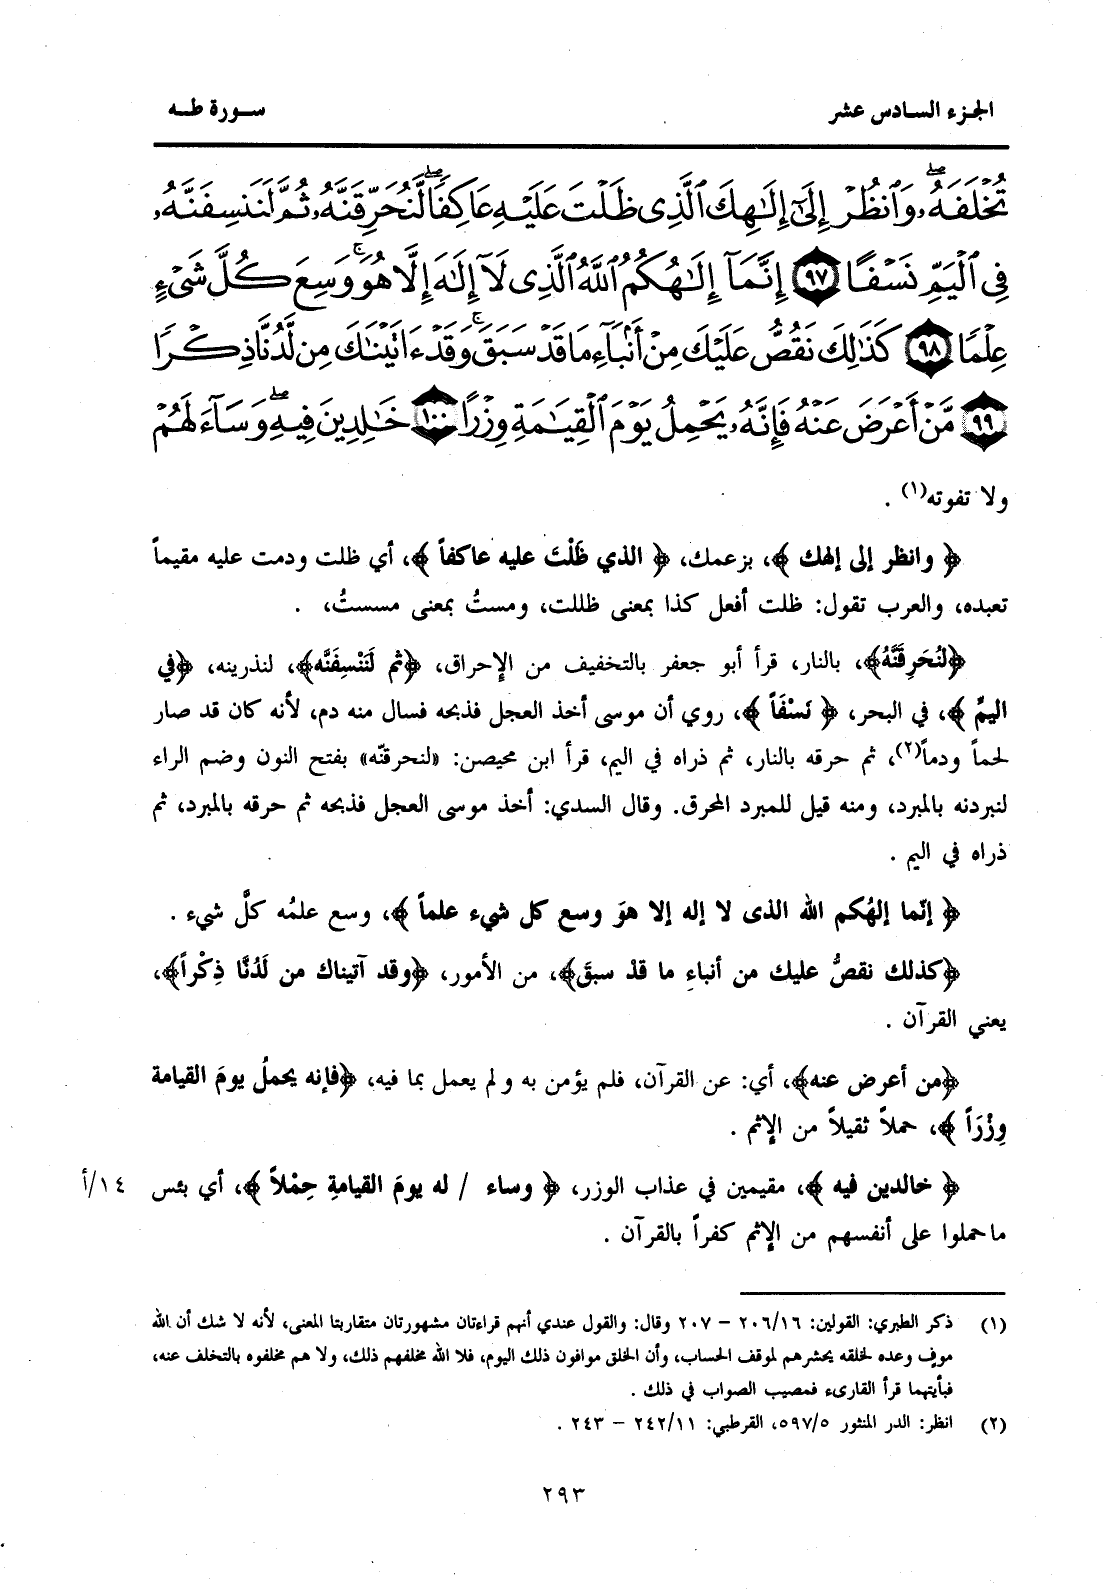 الجزء السادس عشر
سورة طه
تُخْلَفَهُۥۖ وَٱنظُرْ إِلَىٰٓ إِلَٰهِكَ ٱلَّذِى ظَلْتَ عَلَيْهِ عَاكِفًاۖ لَّنُحَرِّقَنَّهُۥ ثُمَّ لَنَنسِفَنَّهُۥ
فِى ٱلْيَمِّ نَسْفًا ٩٧ إِنَّمَآ إِلَٰهُكُمُ ٱللَّهُ ٱلَّذِى لَآ إِلَٰهَ إِلَّا هُوَۚ وَسِعَ كُلَّ شَىْءٍ
عِلْمًا ٩٨ كَذَٰلِكَ نَقُصُّ عَلَيْكَ مِنْ أَنۢبَآءِ مَا قَدْ سَبَقَۚ وَقَدْ ءَاتَيْنَٰكَ مِن لَّدُنَّا ذِكْرًا
٩٩ مَّنْ أَعْرَضَ عَنْهُ فَإِنَّهُۥ يَحْمِلُ يَوْمَ ٱلْقِيَٰمَةِ وِزْرًا ١٠٠ خَٰلِدِينَ فِيهِۖ وَسَآءَ لَهُمْ
ولا تفوته(١) .
﴿ وانظر إلى إلهك ﴾، بزعمك، ﴿ الذي ظَلْتَ عليه عاكفاً ﴾، أي ظلت ودمت عليه مقيماً
تعبده، والعرب تقول: ظلت أفعل كذا بمعنى ظللت، ومستُ بمعنى مسستُ، .
﴿لَنُحَرِقَنَّهُ﴾، بالنار، قرأ أبو جعفر بالتخفيف من الإحراق، ﴿ثم لَنَنْسِفَنَّه﴾، لنذرينه، ﴿في
اليمِّ ﴾، في البحر، ﴿ نَسْفَاً ﴾، روي أن موسى أخذ العجل فذبحه فسال منه دم، لأنه كان قد صار
لحماً ودماً(٢)، ثم حرقه بالنار، ثم ذراه في اليم، قرأ ابن محيصن: «لنحرقنّه» بفتح النون وضم الراء
لنبردنه بالمبرد، ومنه قيل للمبرد المحرق. وقال السدي: أخذ موسى العجل فذبحه ثم حرقه بالمبرد، ثم
ذراه في اليم .
﴿ إنّما إلهُكم الله الذى لا إله إلا هوَ وسع كل شيء علماً ﴾، وسع علمُه كلَّ شيء .
﴿كذلك نقصُّ عليك من أنباءِ ما قدْ سبقَ﴾، من الأمور، ﴿وقد آتيناك من لَدُنَّا ذِكْراً﴾،
يعني القرآن .
﴿من أعرض عنه﴾، أي: عن القرآن، فلم يؤمن به ولم يعمل بما فيه، ﴿فإنه يحملُ يومَ القيامة
وِزْرَاً ﴾، حملاً ثقيلاً من الإثم .
﴿ خالدين فيه ﴾، مقيمين في عذاب الوزر، ﴿ وساء / له يومَ القيامةِ حِمْلاً ﴾، أي بئس ١٤/أ
ما حملوا على أنفسهم من الإثم كفراً بالقرآن .
(١) ذكر الطبري: القولين: ٢٠٦/١٦ – ٢٠٧ وقال: والقول عندي أنهم قراءتان مشهورتان متقاربتا المعنى، لأنه لا شك أن الله
موفٍ وعده لخلقه يحشرهم لموقف الحساب، وأن الخلق موافون ذلك اليوم، فلا الله مخلفهم ذلك، ولا هم مخلفوه بالتخلف عنه،
فبأيتهما قرأ القارىء فمصيب الصواب في ذلك .
(٢) انظر: الدر المنثور ٥٩٧/٥، القرطبي: ٢٤٢/١١ – ٢٤٣ .
٢٩٣